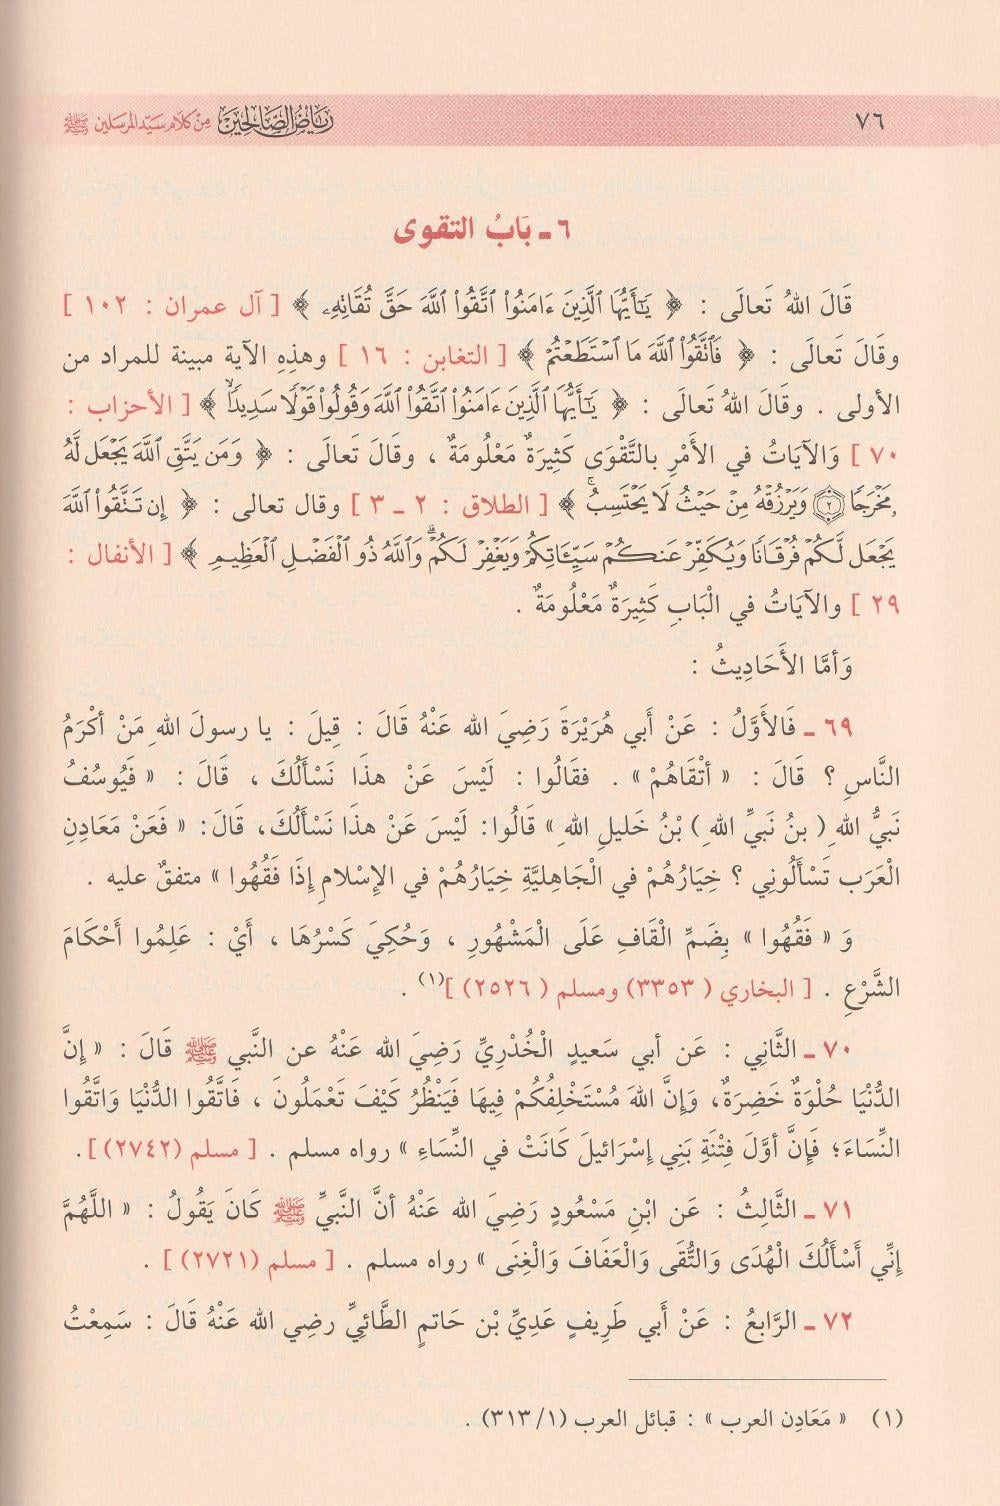 ٧٦
رياض الصالحين من كلام سيد المرسلين ﷺ
٦ ـ بَابُ التقوى
قَالَ اللهُ تَعالَى : ﴿ يَٰٓأَيُّهَا ٱلَّذِينَ ءَامَنُوا۟ ٱتَّقُوا۟ ٱللَّهَ حَقَّ تُقَاتِهِۦ ﴾ [ آل عمران : ١٠٢ ]
وقَالَ تَعالَى : ﴿ فَٱتَّقُوا۟ ٱللَّهَ مَا ٱسْتَطَعْتُمْ ﴾ [ التغابن : ١٦ ] وهذِهِ الآية مبينة للمراد من
الأولى . وقَالَ اللهُ تَعالَى : ﴿ يَٰٓأَيُّهَا ٱلَّذِينَ ءَامَنُوا۟ ٱتَّقُوا۟ ٱللَّهَ وَقُولُوا۟ قَوْلًا سَدِيدًا ﴾ [ الأحزاب :
٧٠ ] وَالآيَاتُ في الأَمْرِ بالتَّقْوَى كَثِيرَةٌ مَعْلُومَةٌ ، وقَالَ تَعالَى : ﴿ وَمَن يَتَّقِ ٱللَّهَ يَجْعَل لَّهُۥ
مَخْرَجًا ۝٢ وَيَرْزُقْهُ مِنْ حَيْثُ لَا يَحْتَسِبُ ۚ ﴾ [ الطلاق : ٢ ـ ٣ ] وقال تعالى : ﴿ إِن تَتَّقُوا۟ ٱللَّهَ
يَجْعَل لَّكُمْ فُرْقَانًا وَيُكَفِّرْ عَنكُمْ سَيِّـَٔاتِكُمْ وَيَغْفِرْ لَكُمْ ۗ وَٱللَّهُ ذُو ٱلْفَضْلِ ٱلْعَظِيمِ ﴾ [ الأنفال :
٢٩ ] والآيَاتُ في الْبَابِ كَثِيرَةٌ مَعْلُومَةٌ .
وَأمَّا الأَحَادِيثُ :
٦٩ ـ فَالأَوَّلُ : عَنْ أبي هُرَيْرَةَ رَضِيَ الله عَنْهُ قَالَ : قِيلَ : يا رسولَ اللهِ مَنْ أكْرَمُ
النَّاسِ ؟ قَالَ : « أتْقَاهُمْ » . فقَالُوا : لَيْسَ عَنْ هذَا نَسْأَلُكَ ، قَالَ : « فَيُوسُفُ
نَبِيُّ اللهِ ( بنُ نَبيِّ اللهِ ) بْنُ خَليلِ اللهِ » قَالُوا: لَيْسَ عَنْ هذَا نَسْأَلُكَ، قَالَ: « فَعَنْ مَعَادِنِ
الْعَرَب تَسْأَلُونِي ؟ خِيَارُهُمْ في الْجَاهِليَّةِ خِيَارُهُمْ في الإِسْلامِ إِذَا فَقُهُوا » متفقٌ عليه .
وَ « فَقُهُوا » بِضَمِّ الْقَافِ عَلَى الْمَشْهُورِ ، وَحُكِيَ كَسْرُهَا ، أَيْ : عَلِمُوا أَحْكَامَ
الشَّرْعِ . [ البخاري ( ٣٣٥٣) ومسلم ( ٢٥٢٦) ](١) .
٧٠ ـ الثَّانِي : عَن أبي سَعيدٍ الْخُدْرِيِّ رَضِيَ الله عَنْهُ عن النبي ﷺ قَالَ : « إنَّ
الدُّنْيَا حُلْوَةٌ خَضِرَةٌ، وَإِنَّ اللهَ مُسْتَخْلِفُكُمْ فِيهَا فَيَنْظُرُ كَيْفَ تَعْمَلُونَ ، فَاتَّقُوا الدُّنْيَا وَاتَّقُوا
النِّسَاءَ؛ فَإِنَّ أوَّلَ فِتْنَةِ بَنِي إِسْرَائيلَ كَانَتْ في النِّسَاءِ » رواه مسلم . [ مسلم (٢٧٤٢) ] .
٧١ ـ الثَّالِثُ : عَن ابْنِ مَسْعُودٍ رَضِيَ الله عَنْهُ أنَّ النَّبيِّ ﷺ كَانَ يَقُولُ : « اللَّهُمَّ
إنِّي أَسْأَلُكَ الْهُدَى وَالتُّقَى وَالْعَفَافَ وَالْغِنَى » رواه مسلم . [ مسلم (٢٧٢١) ] .
٧٢ ـ الرَّابعُ : عَنْ أبي طَرِيفٍ عَدِيِّ بْن حَاتمٍ الطَّائيِّ رضِي الله عَنْهُ قَالَ : سَمِعْتُ
(١) « مَعَادِن العرب » : قبائل العرب (١/ ٣١٣) .